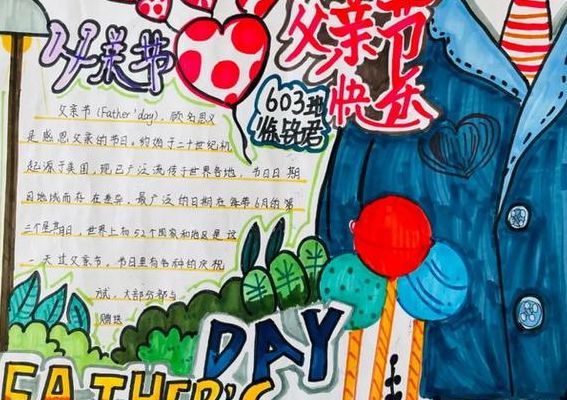 父亲节
父亲节
快乐
603班
父亲节(Father'day), 顾名思义
是感恩父亲的节日。约始于二十世纪初,
起源于美国,现已广泛流传于世界各地,节日日期
因地域而存在差异。最广泛的日期在每年6月的第
三个星期日,世界上有52个国家和地区是这
一天过父亲节。节日里有各种的庆祝
方式,大部分都与
赠送
DAY
FATHER'S